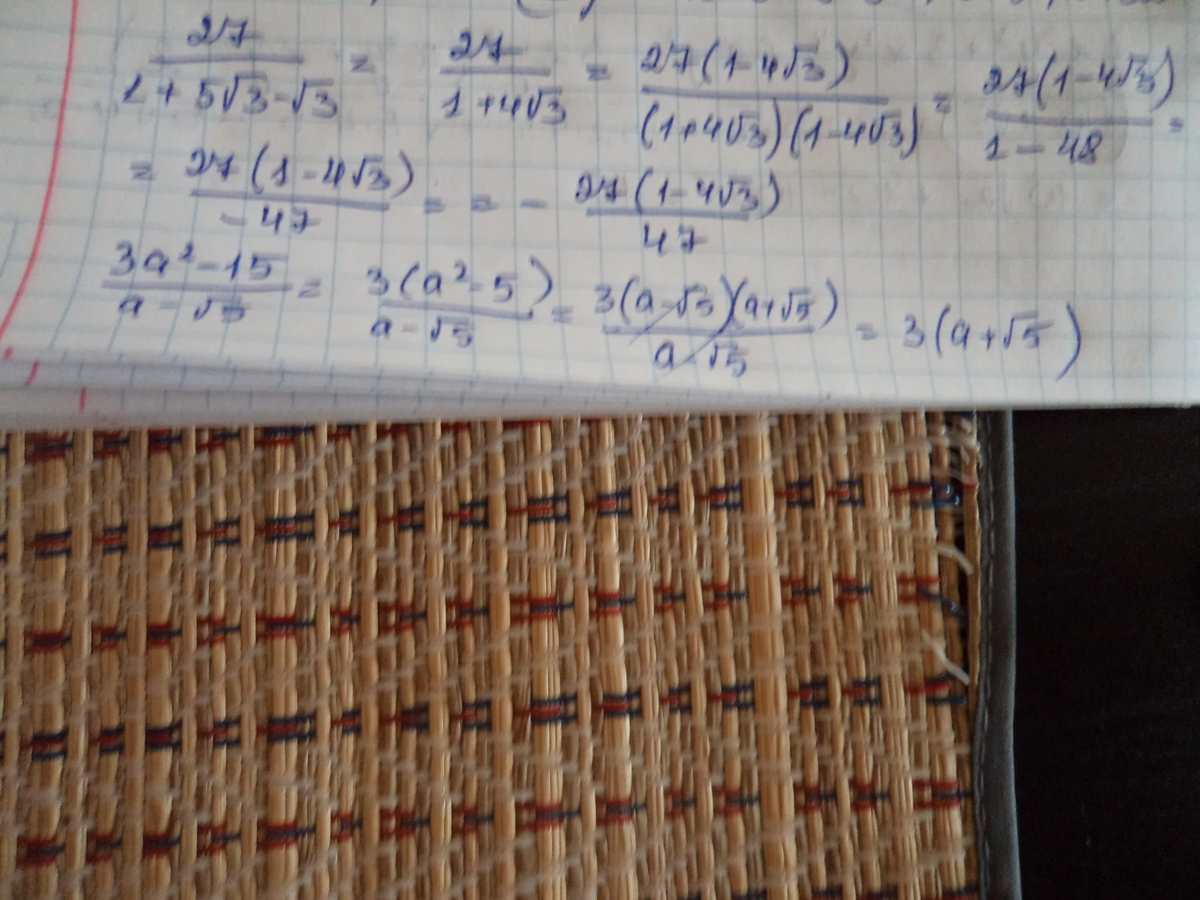 27/(1+5√3-√3) = 27/(1+4√3) = 27(1-4√3)/((1+4√3)(1-4√3)) = 27(1-4√3)/(1-48) =
= 27(1-4√3)/(-47) = = - 27(1-4√3)/47
(3a²-15)/(a-√5) = 3(a²-5)/(a-√5) = 3(a-√5)(a+√5)/(a-√5) = 3(a+√5)